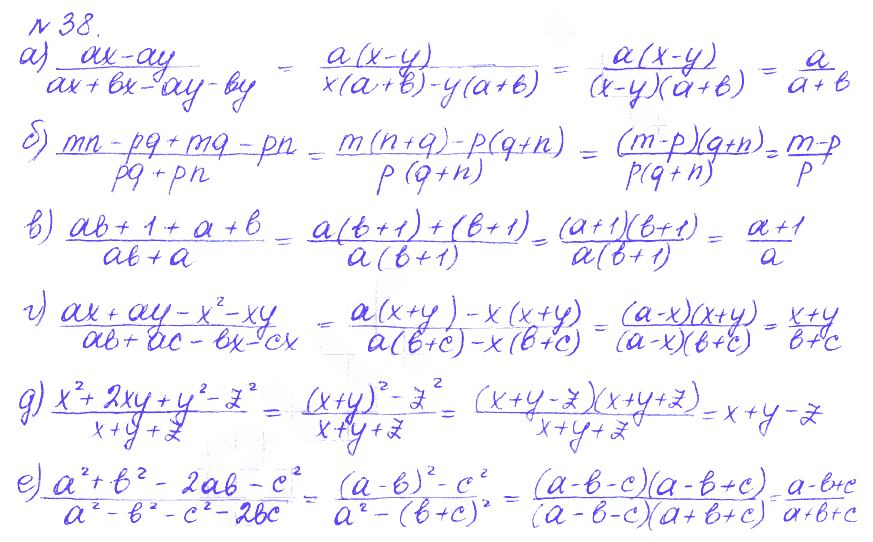 № 38.
а) (ax-ay)/(ax+bx-ay-by) = a(x-y)/(x(a+b)-y(a+b)) = a(x-y)/((x-y)(a+b)) = a/(a+b)
б) (mn-pq+mq-pn)/(pq+pn) = (m(n+q)-p(q+n))/(p(q+n)) = ((m-p)(q+n))/(p(q+n)) = (m-p)/p
в) (ab+1+a+b)/(ab+a) = (a(b+1)+(b+1))/(a(b+1)) = ((a+1)(b+1))/(a(b+1)) = (a+1)/a
г) (ax+ay-x²-xy)/(ab+ac-bx-cx) = (a(x+y)-x(x+y))/(a(b+c)-x(b+c)) = ((a-x)(x+y))/((a-x)(b+c)) = (x+y)/(b+c)
д) (x²+2xy+y²-z²)/(x+y+z) = ((x+y)²-z²)/(x+y+z) = ((x+y-z)(x+y+z))/(x+y+z) = x+y-z
е) (a²+b²-2ab-c²)/(a²-b²-c²-2bc) = ((a-b)²-c²)/(a²-(b+c)²) = ((a-b-c)(a-b+c))/((a-b-c)(a+b+c)) = (a-b+c)/(a+b+c)